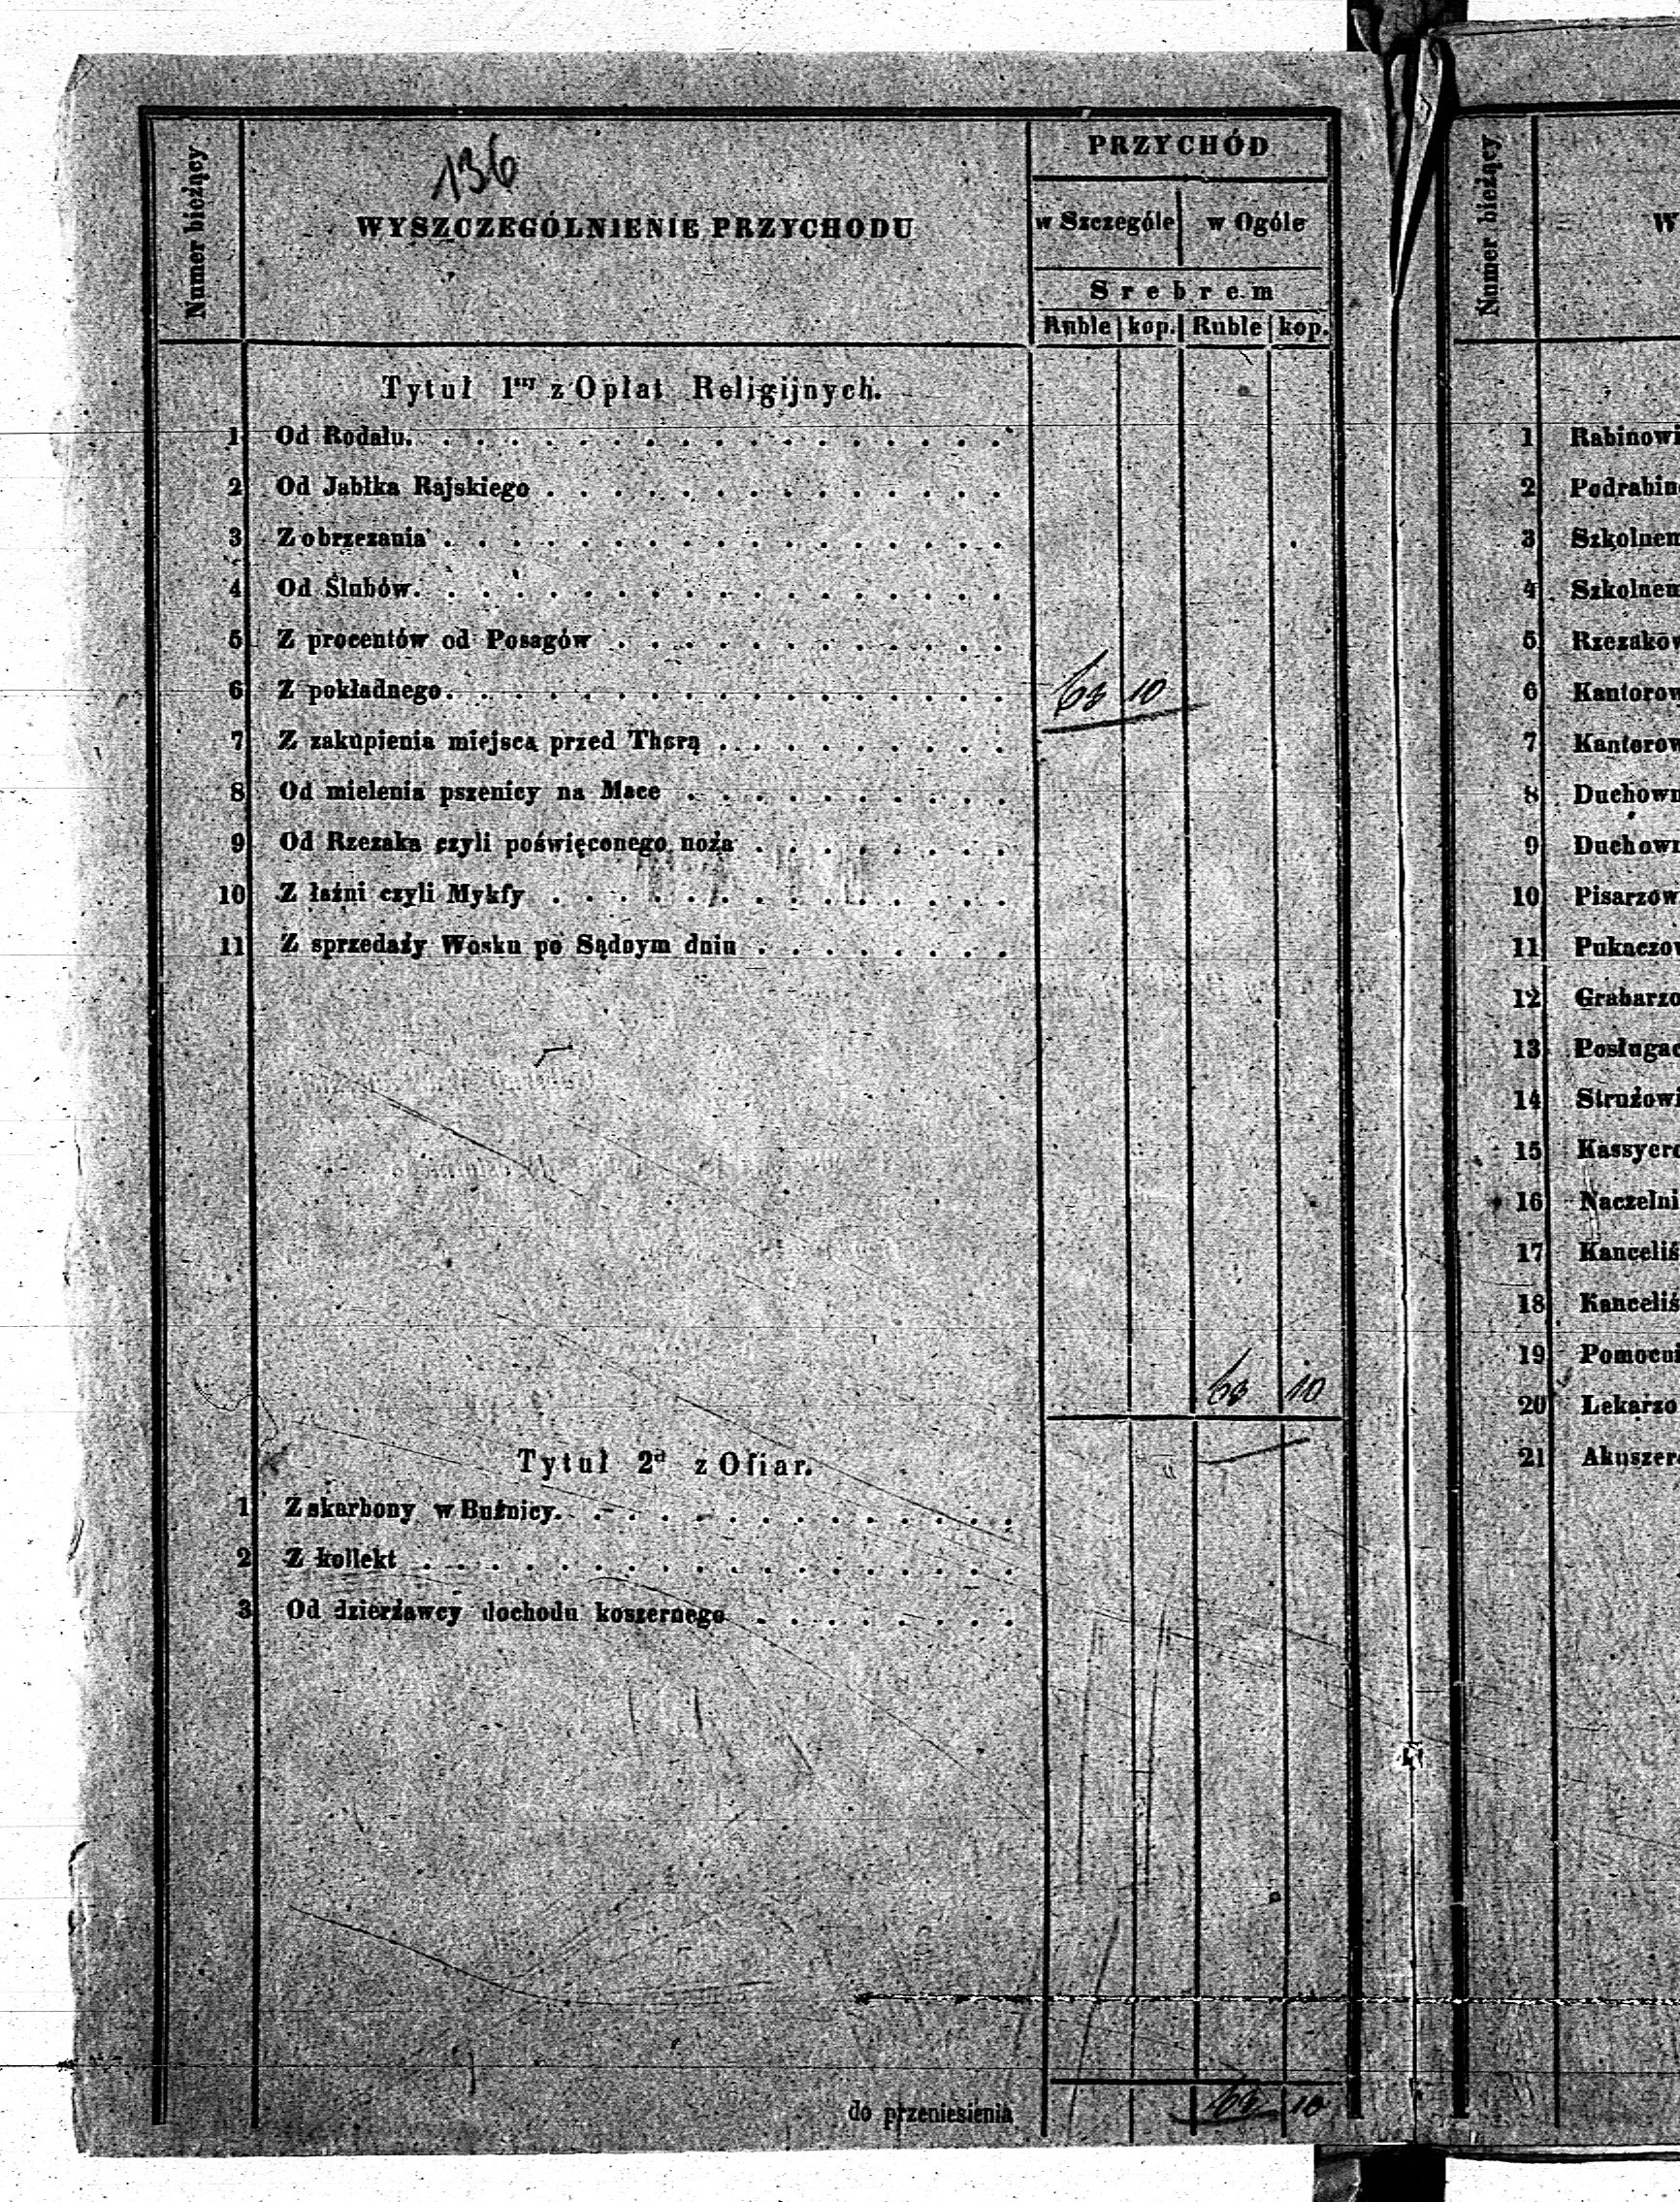 136
Numer bieżący
WYSZCZEGÓLNIENIE PRZYCHODU
PRZYCHÓD
w Szczególe w Ogóle
Srebrem
Ruble kop. Ruble kop.
Tytuł 1szy z Opłat Religijnych.
1 Od Rodału.
2 Od Jabłka Rajskiego
3 Z obrzezania
4 Od Ślubów.
5 Z procentów od Posagów
6 Z pokładnego. 63 10
7 Z zakupienia miejsca przed Thorą
8 Od mielenia pszenicy na Mace
9 Od Rzezaka czyli poświęconego noża
10 Z łaźni czyli Mykfy
11 Z sprzedaży Wosku po Sądnym dniu
63 10
Tytuł 2gi z Ofiar.
1 Z skarbony w Buźnicy.
2 Z kollekt
3 Od dzierżawcy dochodu koszernego
do przeniesienia 63 10
Numer bieżący
W
1 Rabinowi
2 Podrabin
3 Szkolnem
4 Szkolnem
5 Rzezakow
6 Kantorow
7 Kantorow
8 Duchown
9 Duchown
10 Pisarzow
11 Pukaczow
12 Grabarzo
13 Posługac
14 Strużowi
15 Kassyero
16 Naczelni
17 Kanceliś
18 Kanceliś
19 Pomocni
20 Lekarzo
21 Akuszer